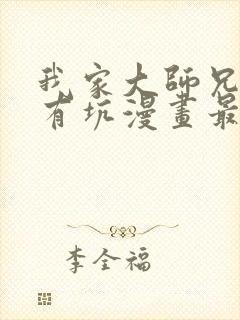 我家大師兄
有坑漫畫最
李全福